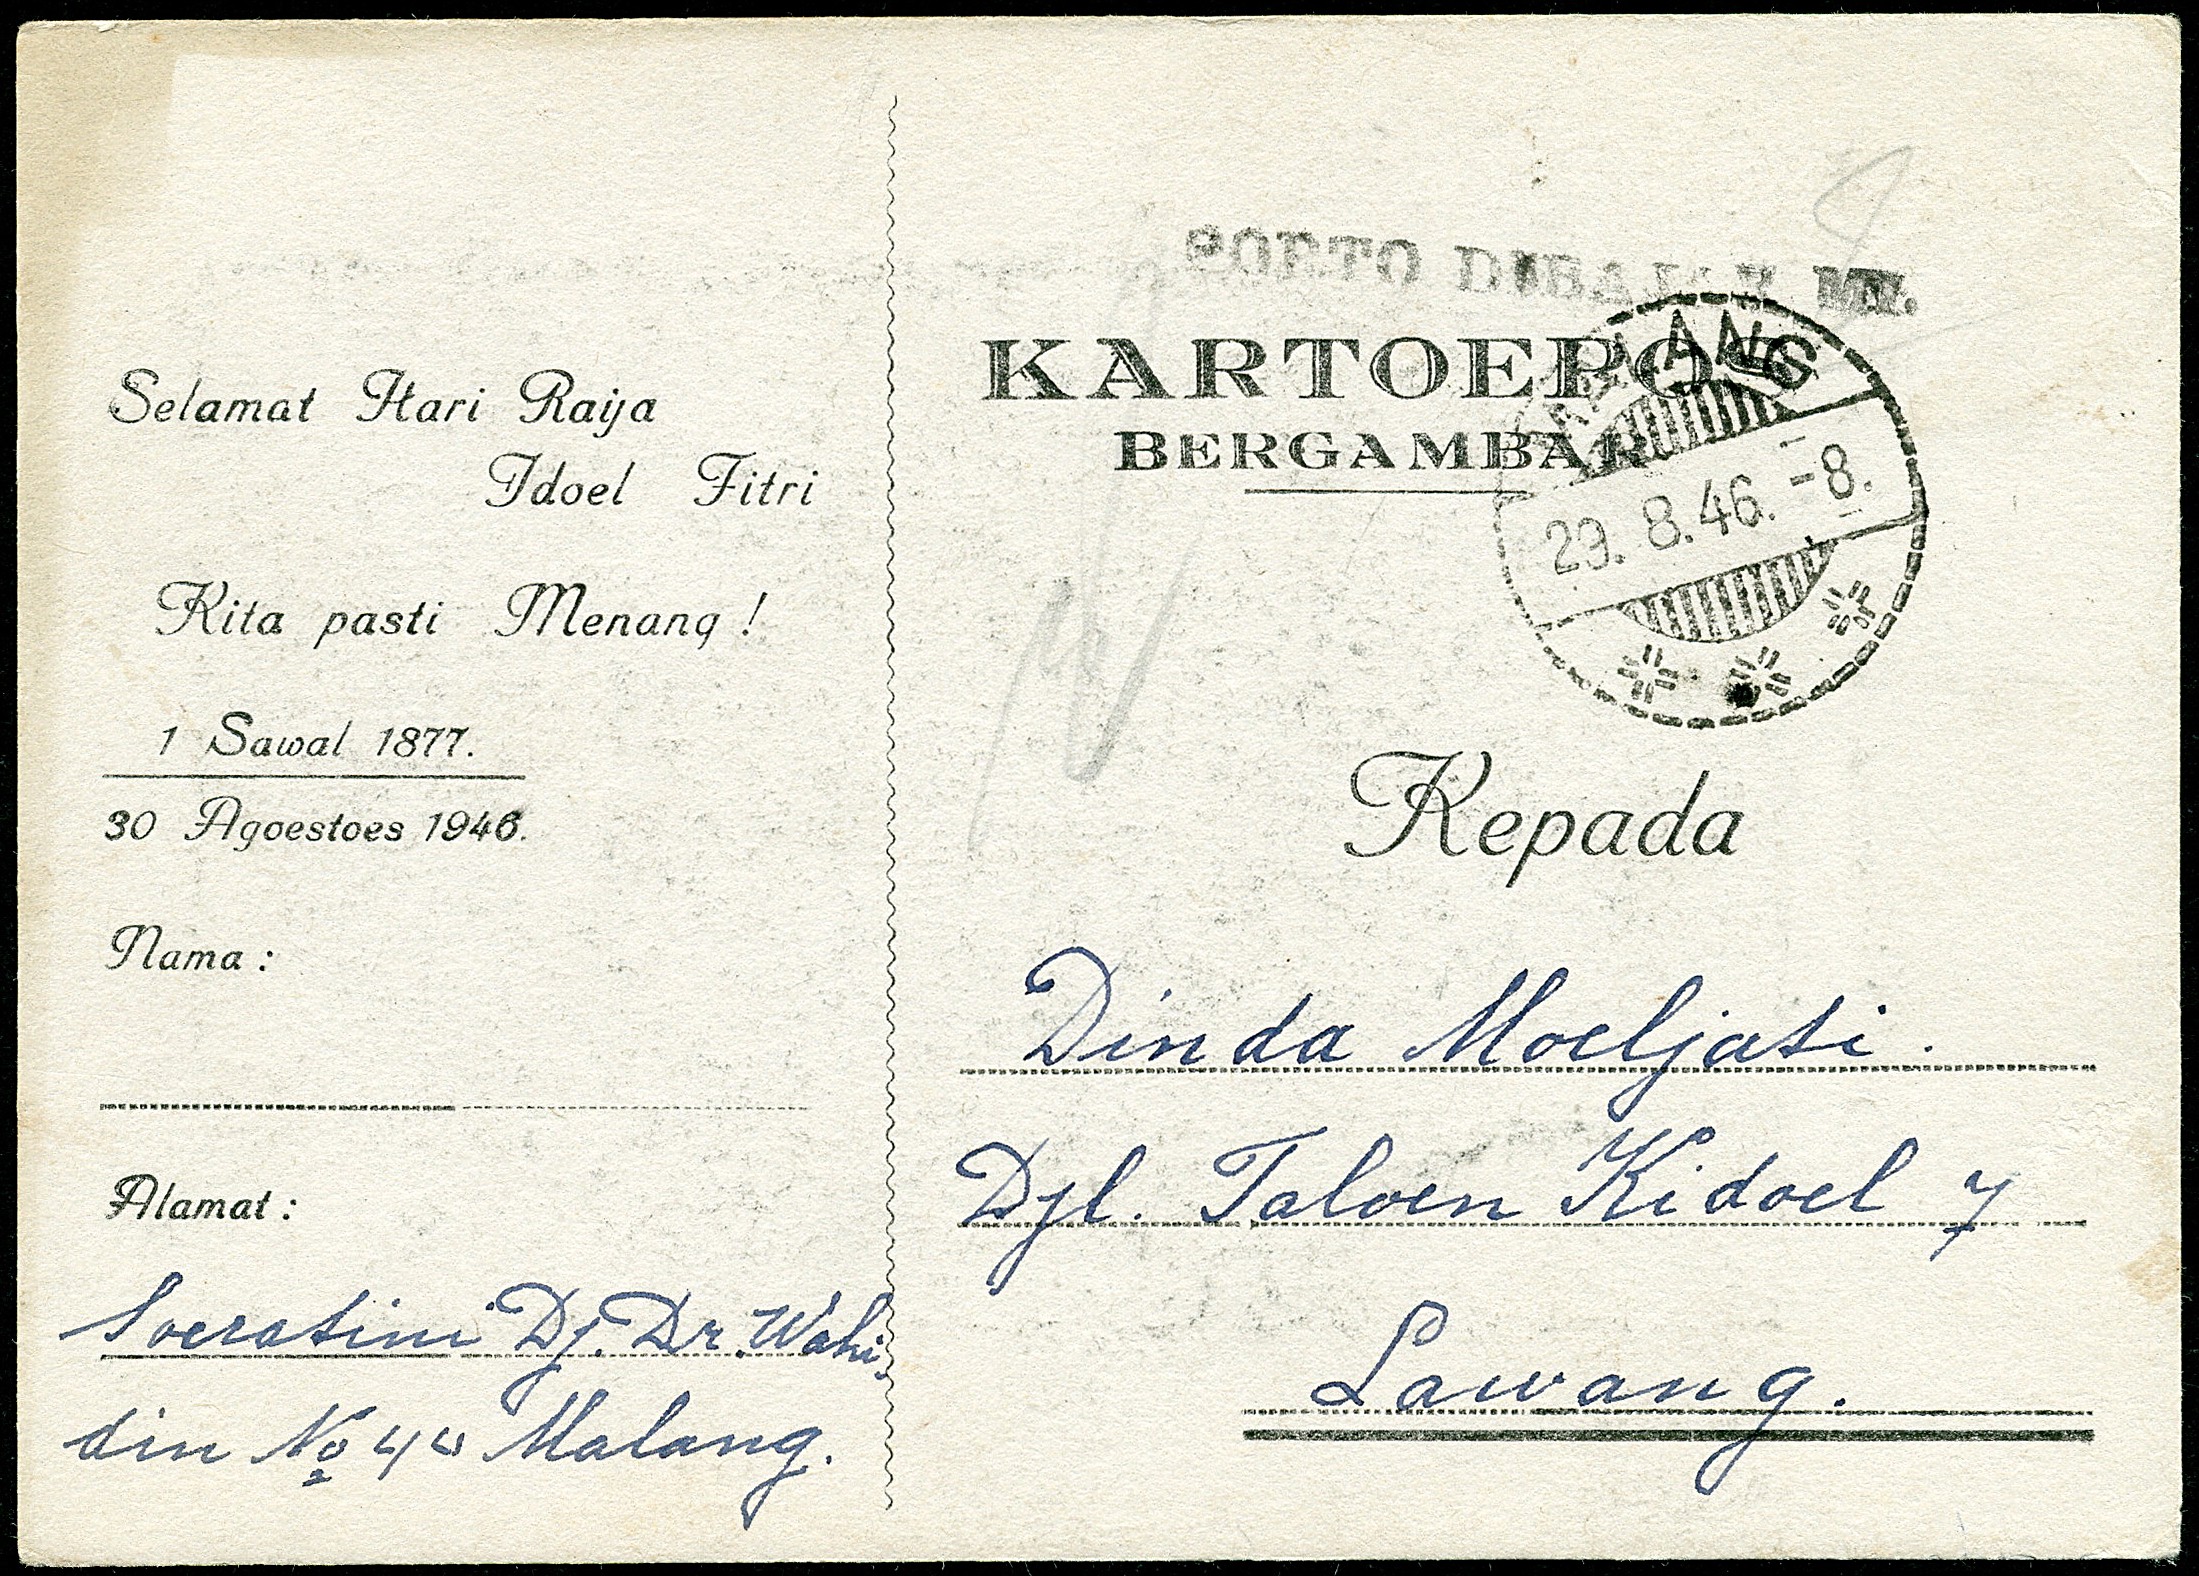 Selamat Hari Raija
Idoel Fitri
Kita pasti Menang !
1 Sawal 1877.
30 Agoestoes 1946.
Nama :
Alamat :
Soeratini Dj. Dr. Wahi-
din No 44 Malang.
PORTO DIBAJAR
KARTOEPOS
BERGAMBAR
MALANG
29. 8.46. -8.
Kepada
Dinda Moeljati.
Djl. Taloen Kidoel 7
Lawang.